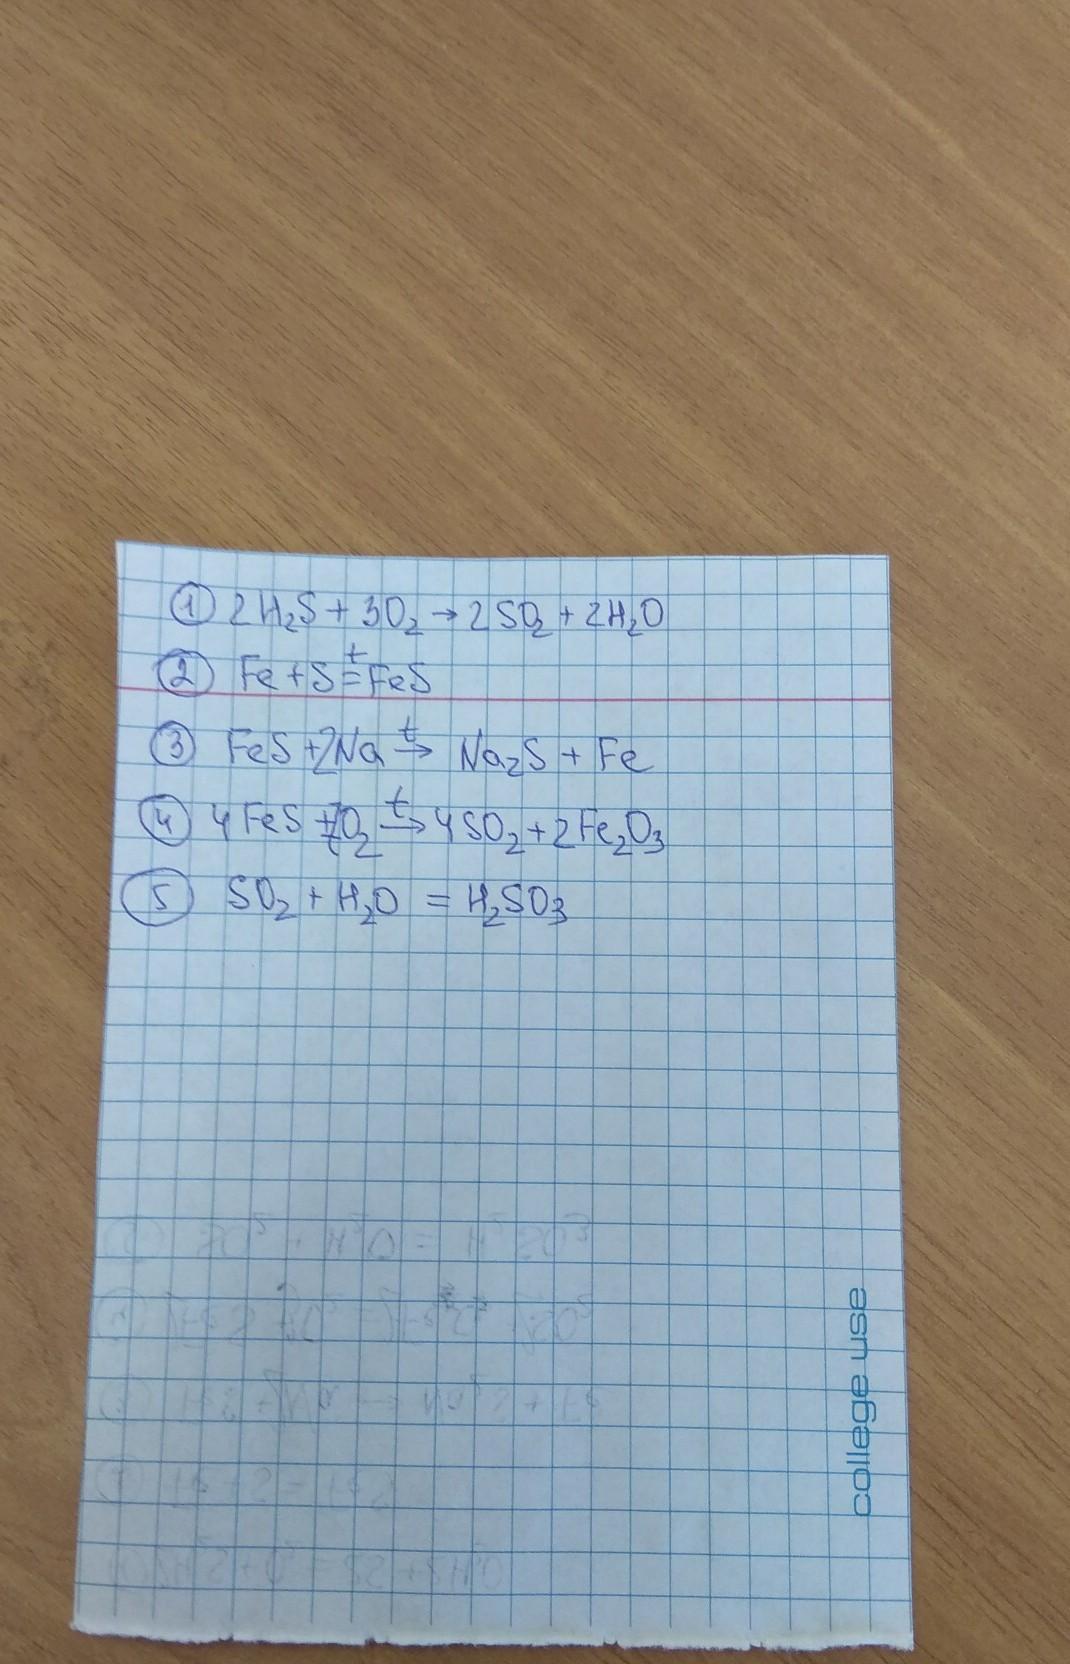 ① 2H₂S + 3O₂ → 2SO₂ + 2H₂O
② Fe + S =ᵗ FeS
③ FeS + 2Na →ᵗ Na₂S + Fe
④ 4FeS + 7O₂ →ᵗ 4SO₂ + 2Fe₂O₃
⑤ SO₂ + H₂O = H₂SO₃
college use